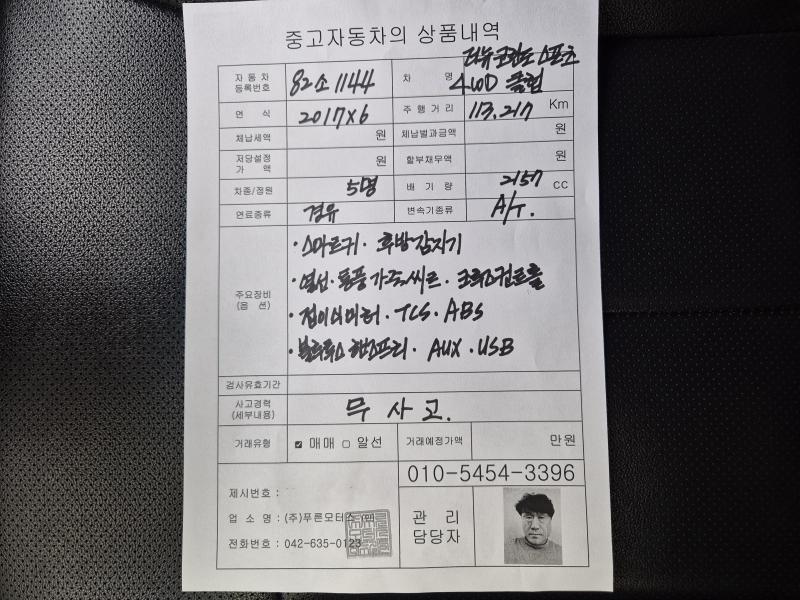 중고자동차의 상품내역
자동차 등록번호 82소1144 차 명 더뉴코란도스포츠 4WD 클럽
연 식 2017X6 주행거리 113,217 Km
체납세액 원 체납벌과금액 원
저당설정 가 액 원 할부채무액 원
차종/정원 5명 배 기 량 2157 cc
연료종류 경유 변속기종류 A/T.
주요장비 (옵 션)
· 스마트키 · 후방감지기
· 열선 · 통풍 가죽씨트 · 크루즈컨트롤
· 접이식미러 · TCS · ABS
· 블루투스 핸즈프리 · AUX · USB
검사유효기간
사고경력 (세부내용) 무 사 고.
거래유형 ☑ 매매 □ 알선 거래예정가액 만원
010-5454-3396
제시번호 :
업 소 명 : (주)푸른모터스
전화번호 : 042-635-0123
관 리
담당자